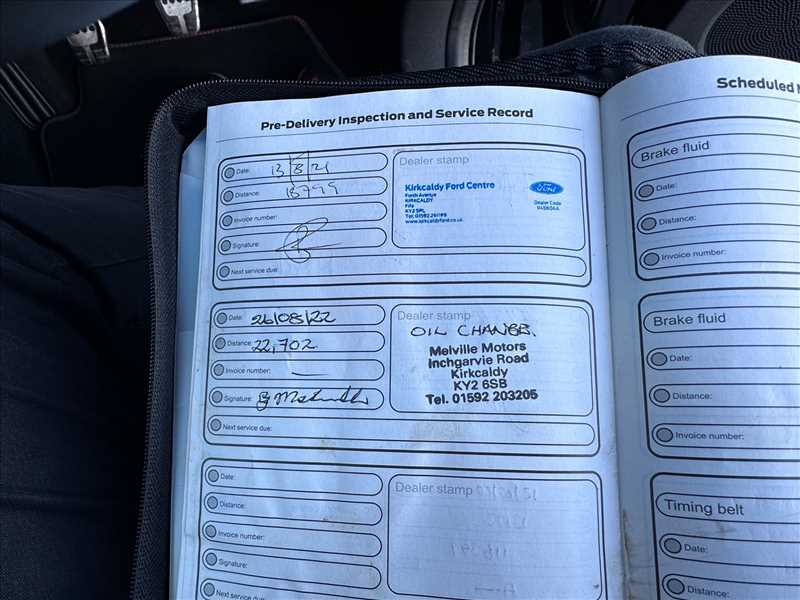 Pre-Delivery Inspection and Service Record
Date: 13 8 21
Distance: 15799
Invoice number:
Signature:
Next service due:
Dealer stamp
Kirkcaldy Ford Centre
Forth Avenue
KIRKCALDY
Fife
KY2 5PL
Tel: 01592 261199
www.kirkcaldyford.co.uk
Ford
Dealer Code
Date: 26/08/22
Distance: 22,702
Invoice number: —
Signature:
Next service due:
Dealer stamp
OIL CHANGE.
Melville Motors
Inchgarvie Road
Kirkcaldy
KY2 6SB
Tel. 01592 203205
Date:
Distance:
Invoice number:
Signature:
Next service due:
Dealer stamp
Scheduled
Brake fluid
Date:
Distance:
Invoice number:
Brake fluid
Date:
Distance:
Invoice number:
Timing belt
Date:
Distance: